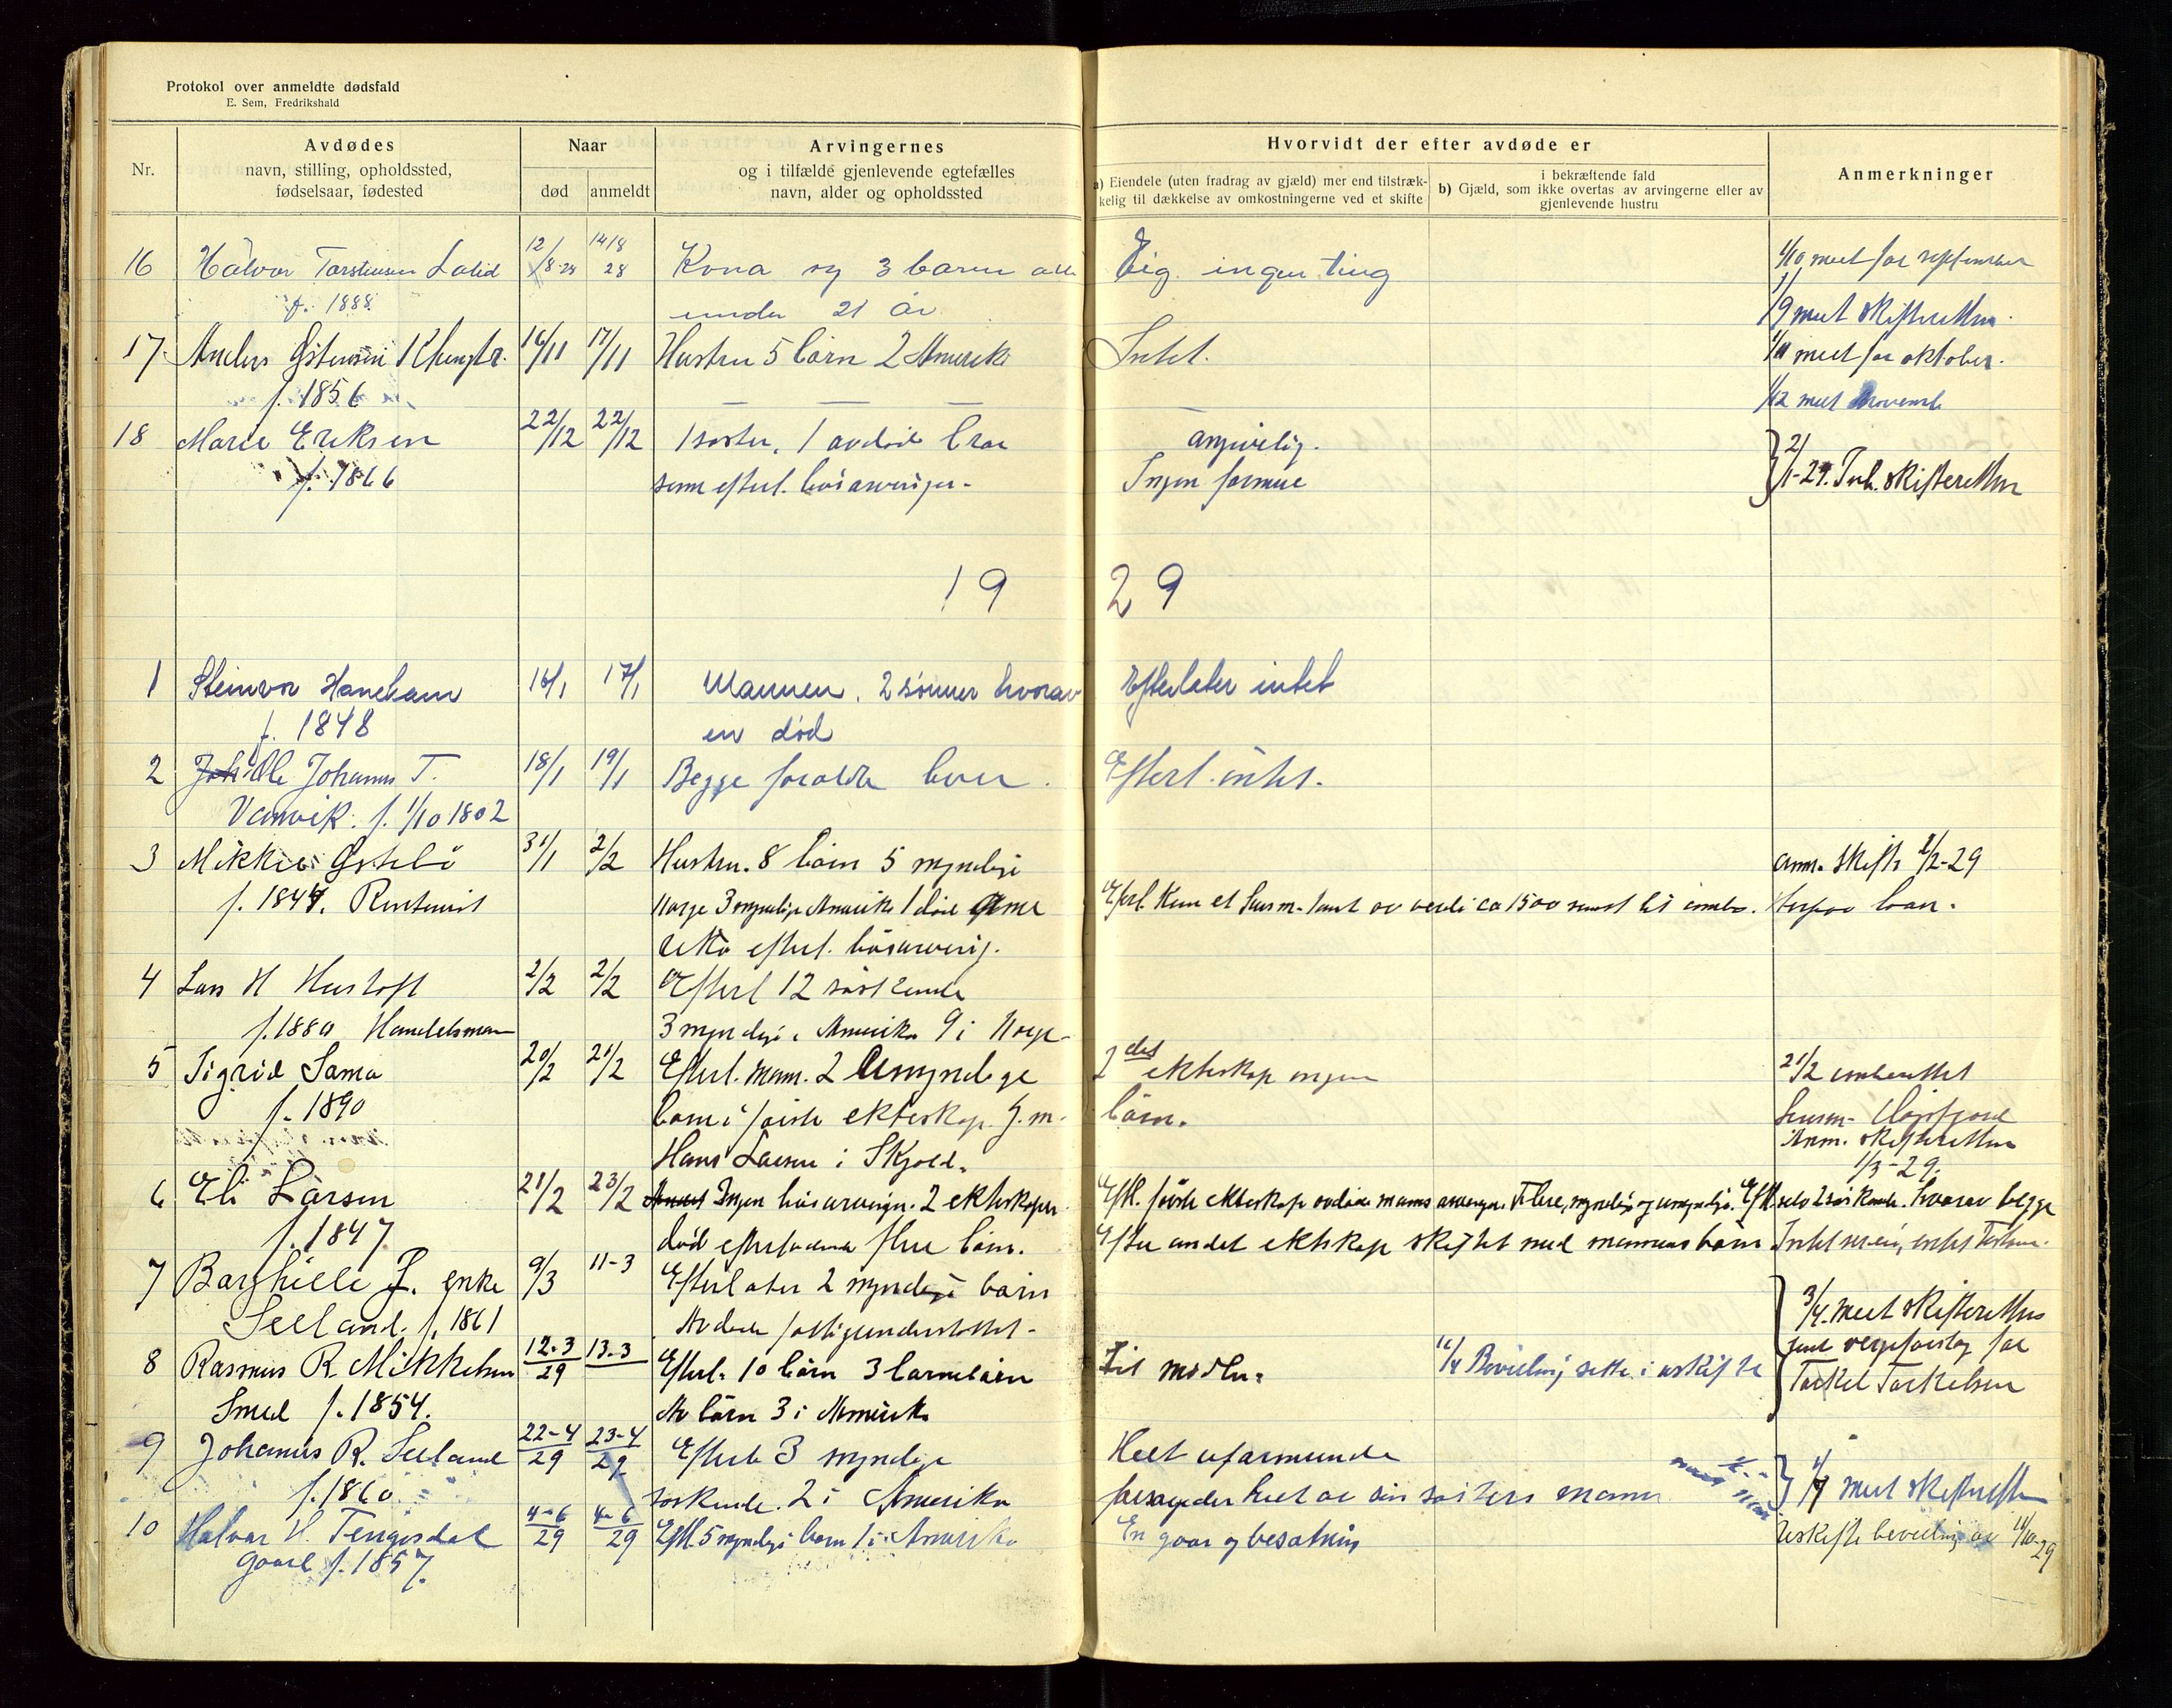 Protokol over anmeldte dødsfald
E. Sem, Fredrikshald
Nr.
Avdødes
navn, stilling, opholdssted,
fødselsaar, fødested
Naar
død
anmeldt
Arvingernes
og i tilfælde gjenlevende egtefælles
navn, alder og opholdssted
Hvorvidt der efter avdøde er
a) Eiendele (uten fradrag av gjæld) mer end tilstræk-
kelig til dækkelse av omkostningerne ved et skifte
i bekræftende fald
b) Gjæld, som ikke overtas av arvingerne eller av
gjenlevende hustru
Anmerkninger
16 Halvor Torsteinsen 12/8-28 14/8 28 Kona og 3 barn alle Eig ingen ting 1/10 meet for september
f. 1888 under 21 år 1/9 meet skifteretten.
17 Anders Østensen 16/11 17/11 Hustru 5 børn 2 Amerika Intet. 1/11 meet for oktober.
f. 1856 1/12 meet novemb
18 Marie Eriksen 22/12 22/12 1 søster, 1 avdød bror angivelig.
f. 1866 som efterl. livsarvinger. Ingen formue 2/1-29. Inb. skifteretten
19 29
1 Steinvor Haneham 16/1 17/1 Mannen. 2 sønner hvorav Efterlater intet
f. 1848 en død
2 Ole Johannes T. 18/1 19/1 Begge foreldre lever. Efterl. intet.
Vanvik. f. 1/10 1802
3 Mikkel Østebø 31/1 2/2 Hustru. 8 børn 5 myndige anm. Skifte 2/2-29
f. 1844. Norge 3 myndige Amerika 1 død Efterl. Kun et av verdi ca 1500 samt litt
efterl. livsarving.
4 Lars H Hustoft 2/2 2/2 Efterl 12 søskende
f. 1880 Handelsman 3 myndige i Amerika 9 i Norge
5 Sigrid Sama 20/2 21/2 Efterl. mann. 2 Umyndige 2det ekteskap ingen 21/2
f. 1890 barn i første ekteskap g. m. børn. Anm. skifteretten
Hans Larsen i Skjold. 1/3-29.
6 Eli Larsen 21/2 23/2 Ingen livsarvinger. 2 ekteskap Eftl. første ekteskap avdøde manns arvinger. Flere, myndige og umyndige. Eftl. selv 2 søskende. hvorav begge
f. 1847 død efterladende flere børn. Efter andet ekteskap skiftet med mannens barn
7 J. enke 9/3 11-3 Efterlater 2 myndige børn 3/4 meet skifteretten
Seeland. f. 1861 Avdøde fattigunderstøttet. samt vergeforslag for
8 Rasmus R. Mikkelsen 12-3 29 13-3 Efterl. 10 børn 3 barnebørn 16/4 Bevilling sitte i uskifte Torkel Torkelsen
Smed f. 1854. Av børn 3 i Amerika
9 Johannes R. Seeland 22-4 29 23-4 29 Efterl 3 myndige Helt uformuende meet skifteretten
f. 1860 søskende. 2 i Amerika forsørgedes helt av sin søsters mann
10 Halvor H. Tengesdal 4-6 29 4-6 29 Eftl. 5 myndige barn 1 i Amerika En gaar og besætning Uskifte bevilling av 4/10-29
Gaard f. 1857.